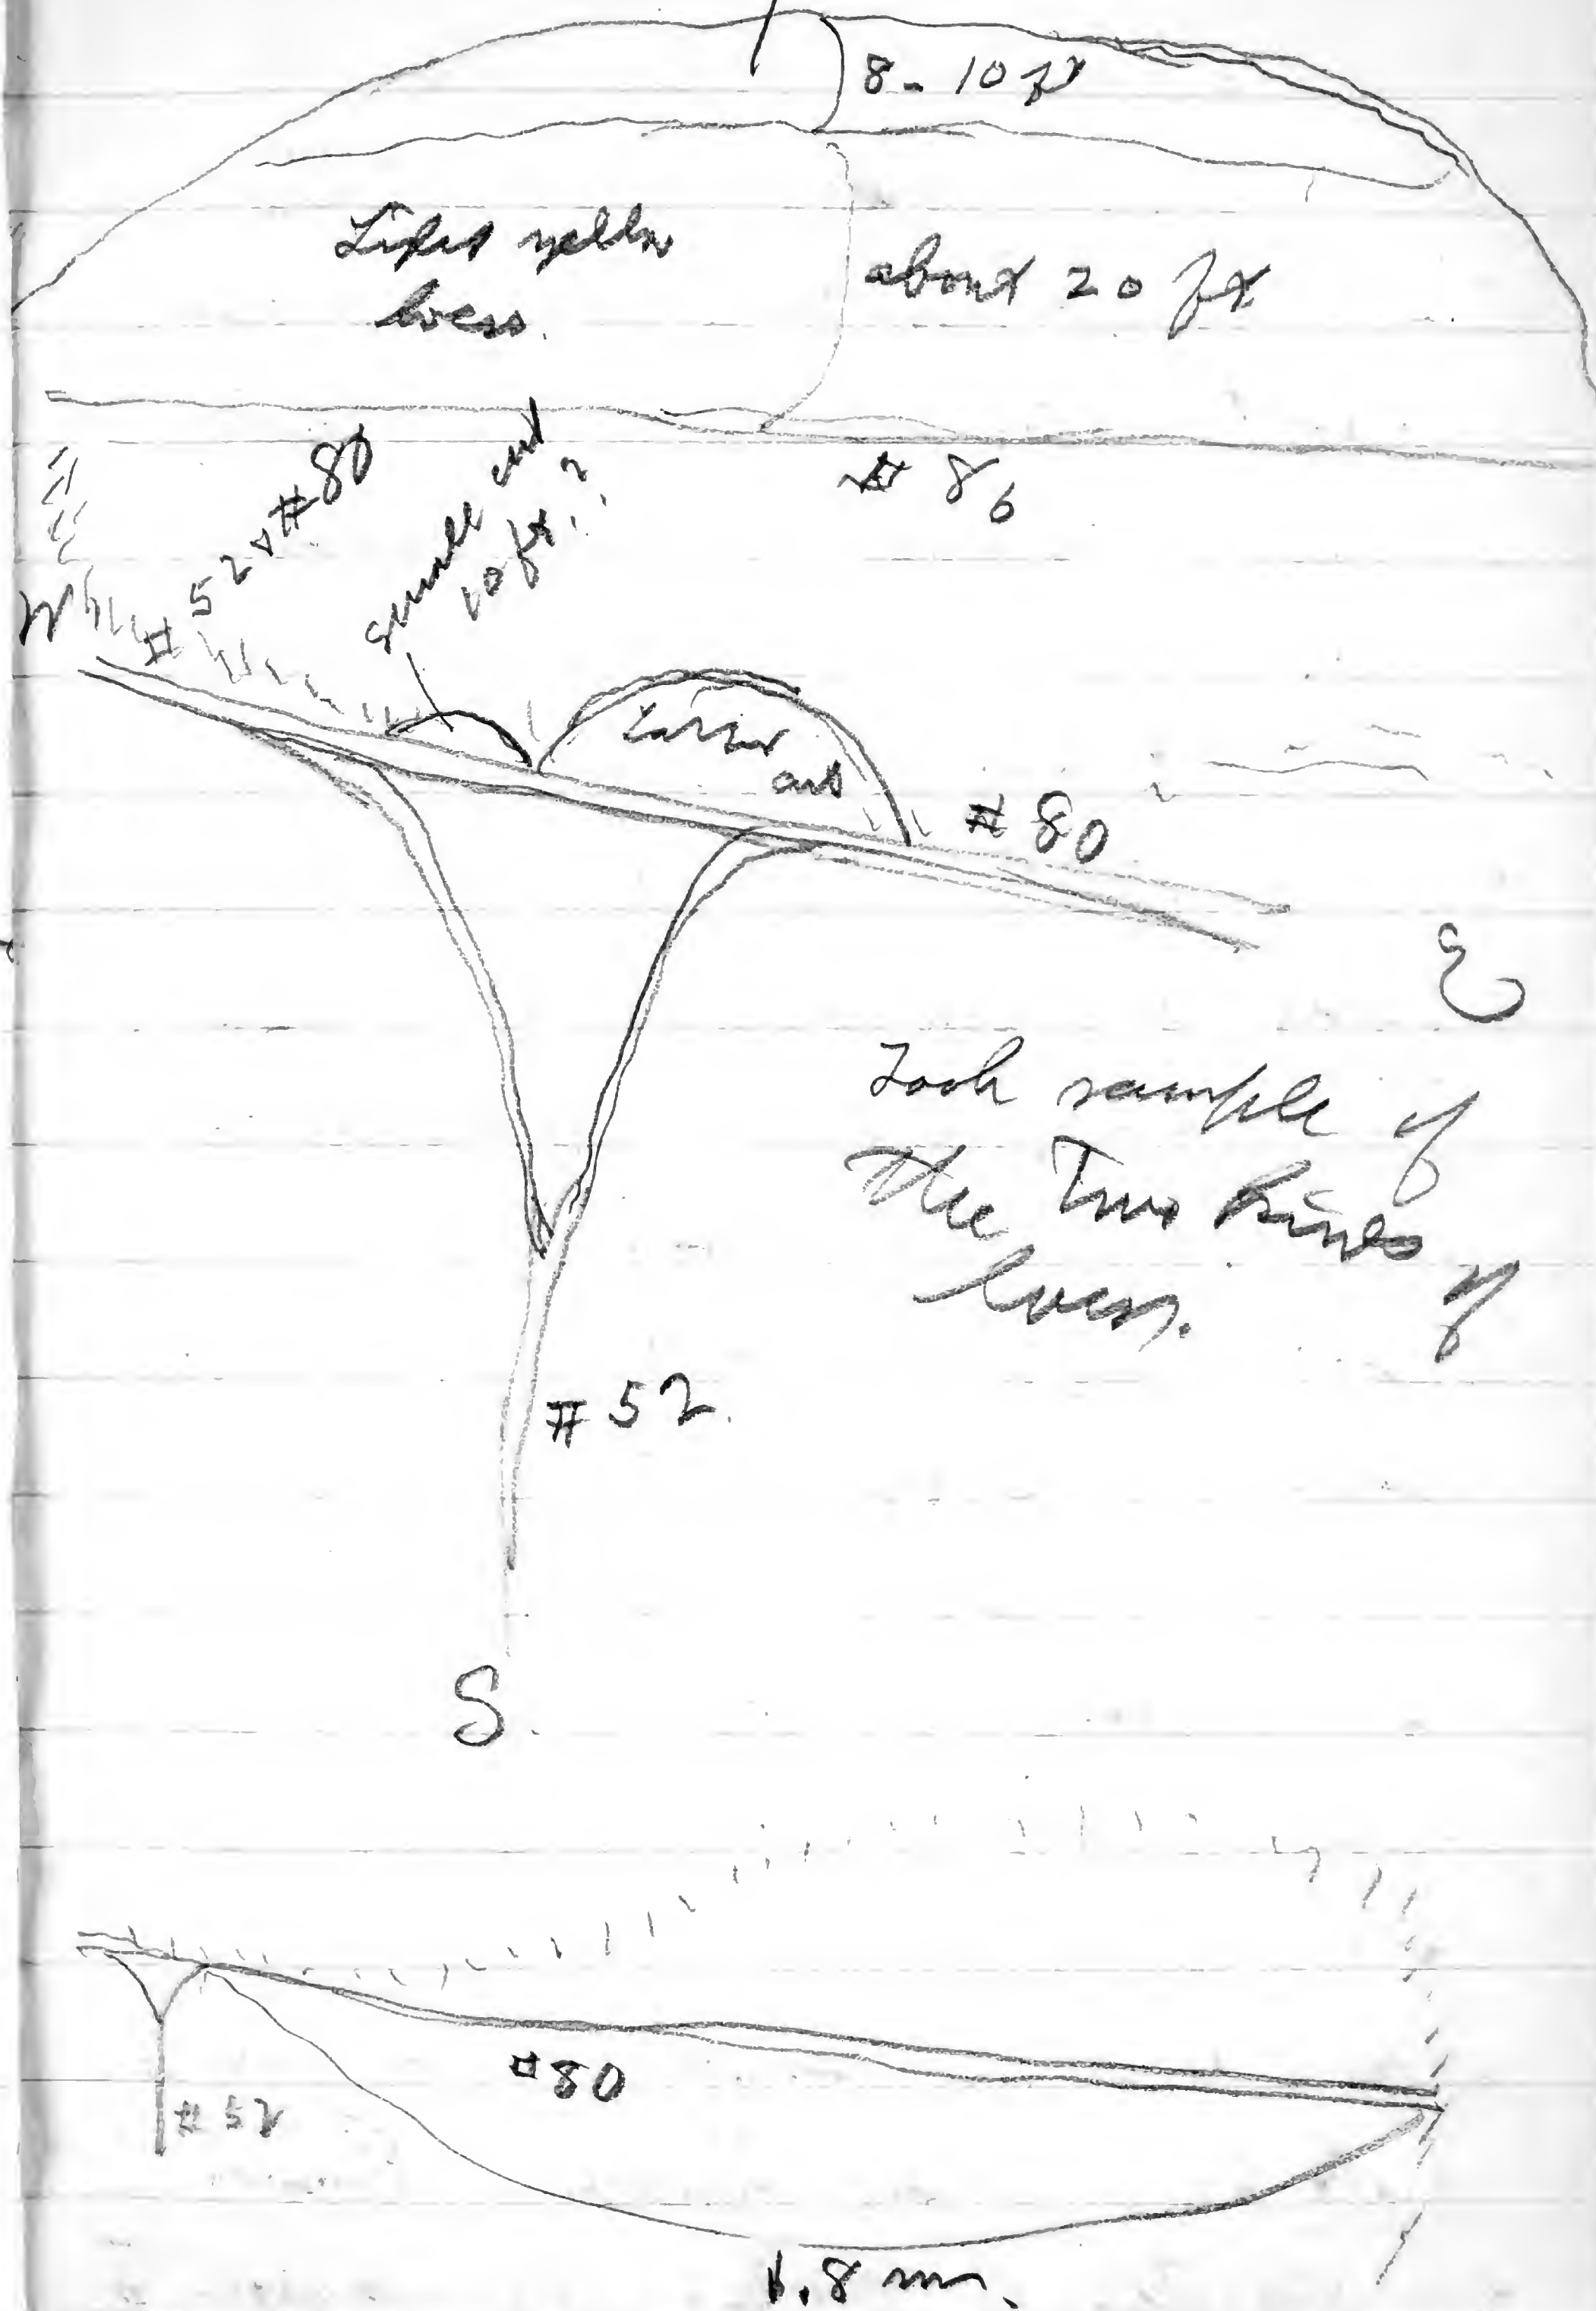 8-10 ft
Light yellow
loess.
about 20 ft
# 86
W
# 52 & # 80
small cut
10 ft.?
Larger
cut
# 80
E
Took sample of
the two kinds of
loess.
# 52.
S.
# 80
# 52
.8 m.